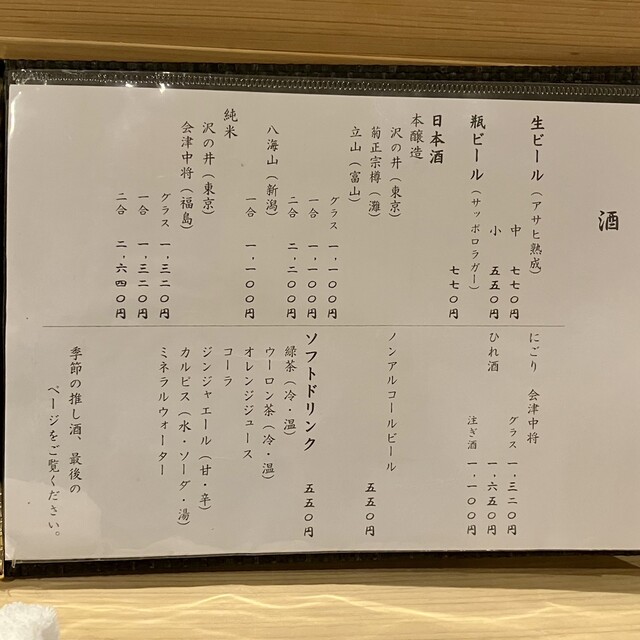 酒
生ビール（アサヒ熟成）
中 七七〇円
小 五五〇円
瓶ビール（サッポロラガー）
七七〇円
日本酒
本醸造
沢の井（東京）
菊正宗樽（灘）
立山（富山）
グラス 一、一〇〇円
一合 一、一〇〇円
二合 二、二〇〇円
八海山（新潟）
一合 一、一〇〇円
純米
沢の井（東京）
会津中将（福島）
グラス 一、三二〇円
一合 一、三二〇円
二合 二、六四〇円
にごり 会津中将
グラス 一、三二〇円
ひれ酒 一、六五〇円
注ぎ酒 一、一〇〇円
ノンアルコールビール
五五〇円
ソフトドリンク 五五〇円
緑茶（冷・温）
ウーロン茶（冷・温）
オレンジジュース
コーラ
ジンジャエール（甘・辛）
カルピス（水・ソーダ・湯）
ミネラルウォーター
季節の推し酒、最後の
ページをご覧ください。